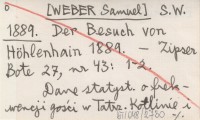 [WEBER Samuel] S.W.
1889. Der Besuch von
Höhlenhain 1889. — Zipser
Bote 27, nr 43: 1-2.
Dane statyst. o frek-
wencji gości w Tatrz. Kotlinie i